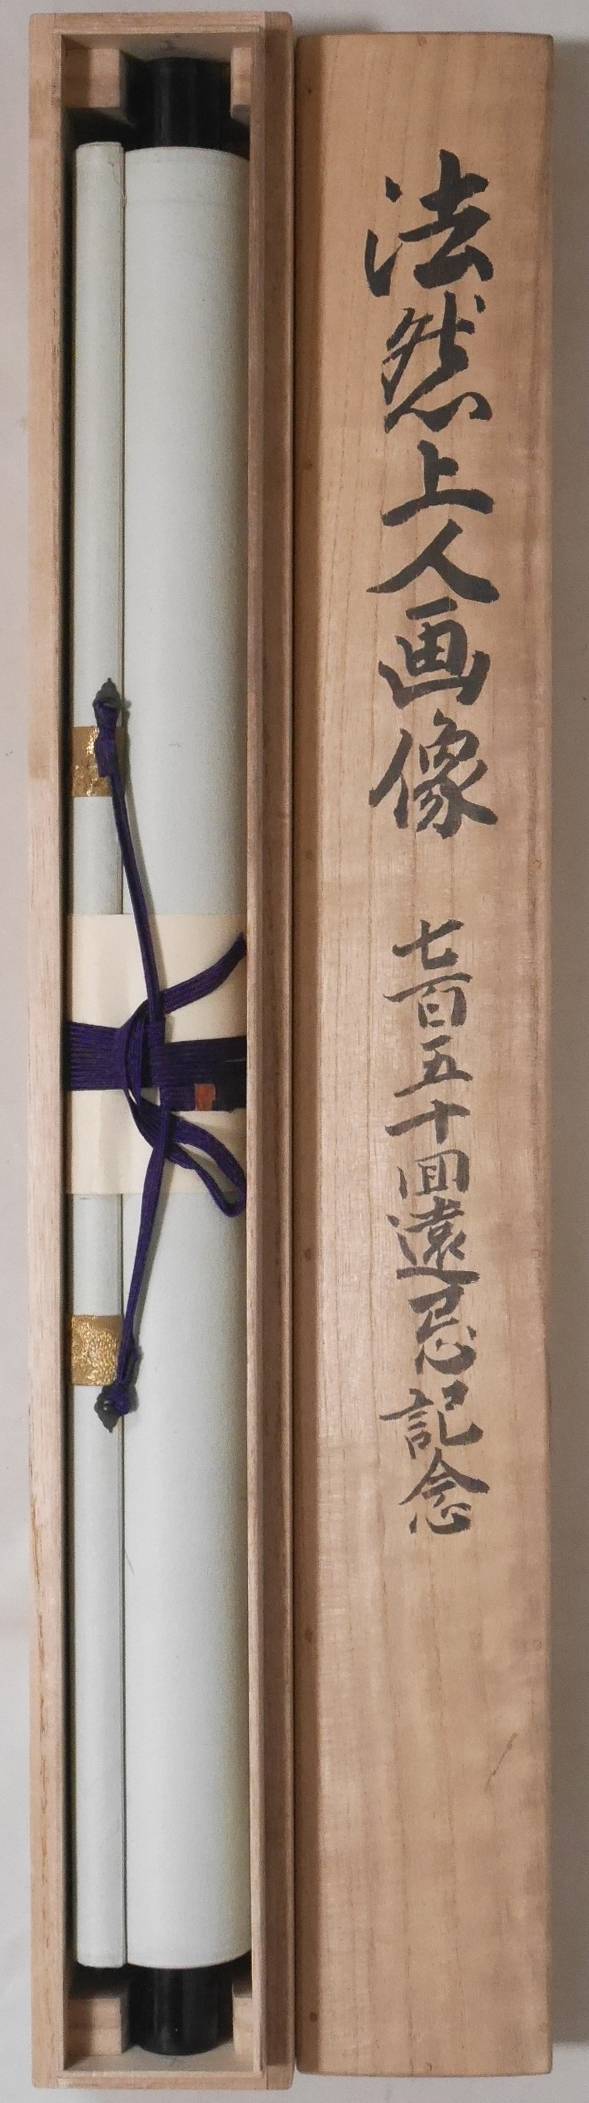 法然上人画像 七百五十回遠忌記念